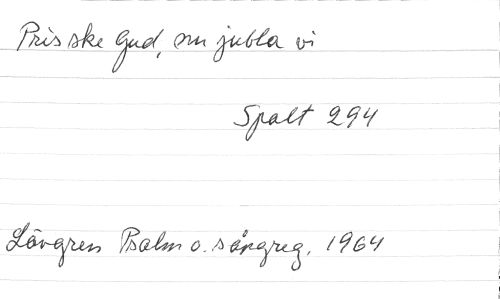 Pris ske Gud, nu jubla vi
Spalt 294
Lövgren Psalm o. sångreg. 1964